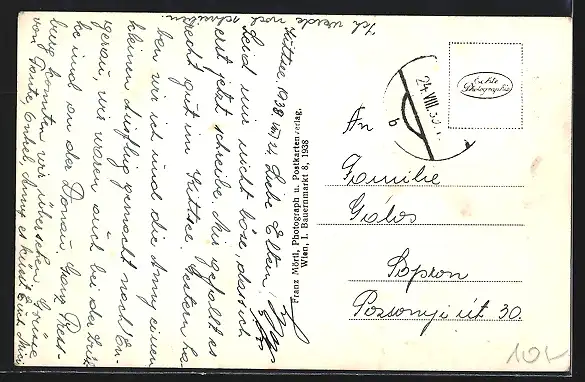 Ich werde noch schreiben.
Kittsee, 1938. VIII 21. Liebe Eltern!
Seid mir nicht böse, daß ich
erst jetzt schreibe. Mir gefällt es
recht gut in Kittsee. Gestern ha-
ben wir ich und die Anny einen
kleinen Ausflug gemacht nach En-
gerau, wir waren auch bei der Brük-
ke und an der Donau. Ganz Press-
burg konnten wir übersehen. Grüsse
von Tante, Onkel, Anny es küsst Euch
Franz Mörtl, Photograph u. Postkartenverlag,
Wien, I. Bauernmarkt 8, 1938
24. VIII. 38
b
Echte
Photographie
An
Familie
Galos
Sopron
Pozsonyi út 30.
10,-